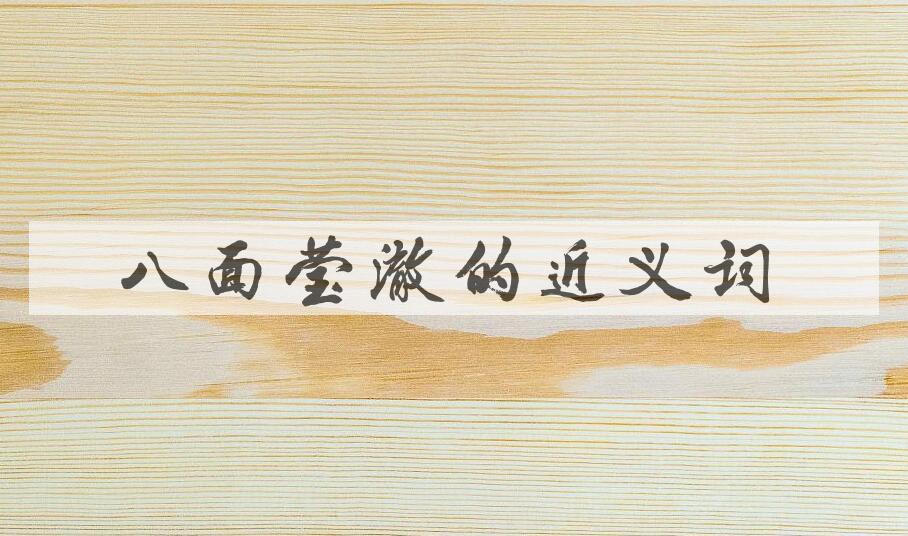 八面莹澈的近义词